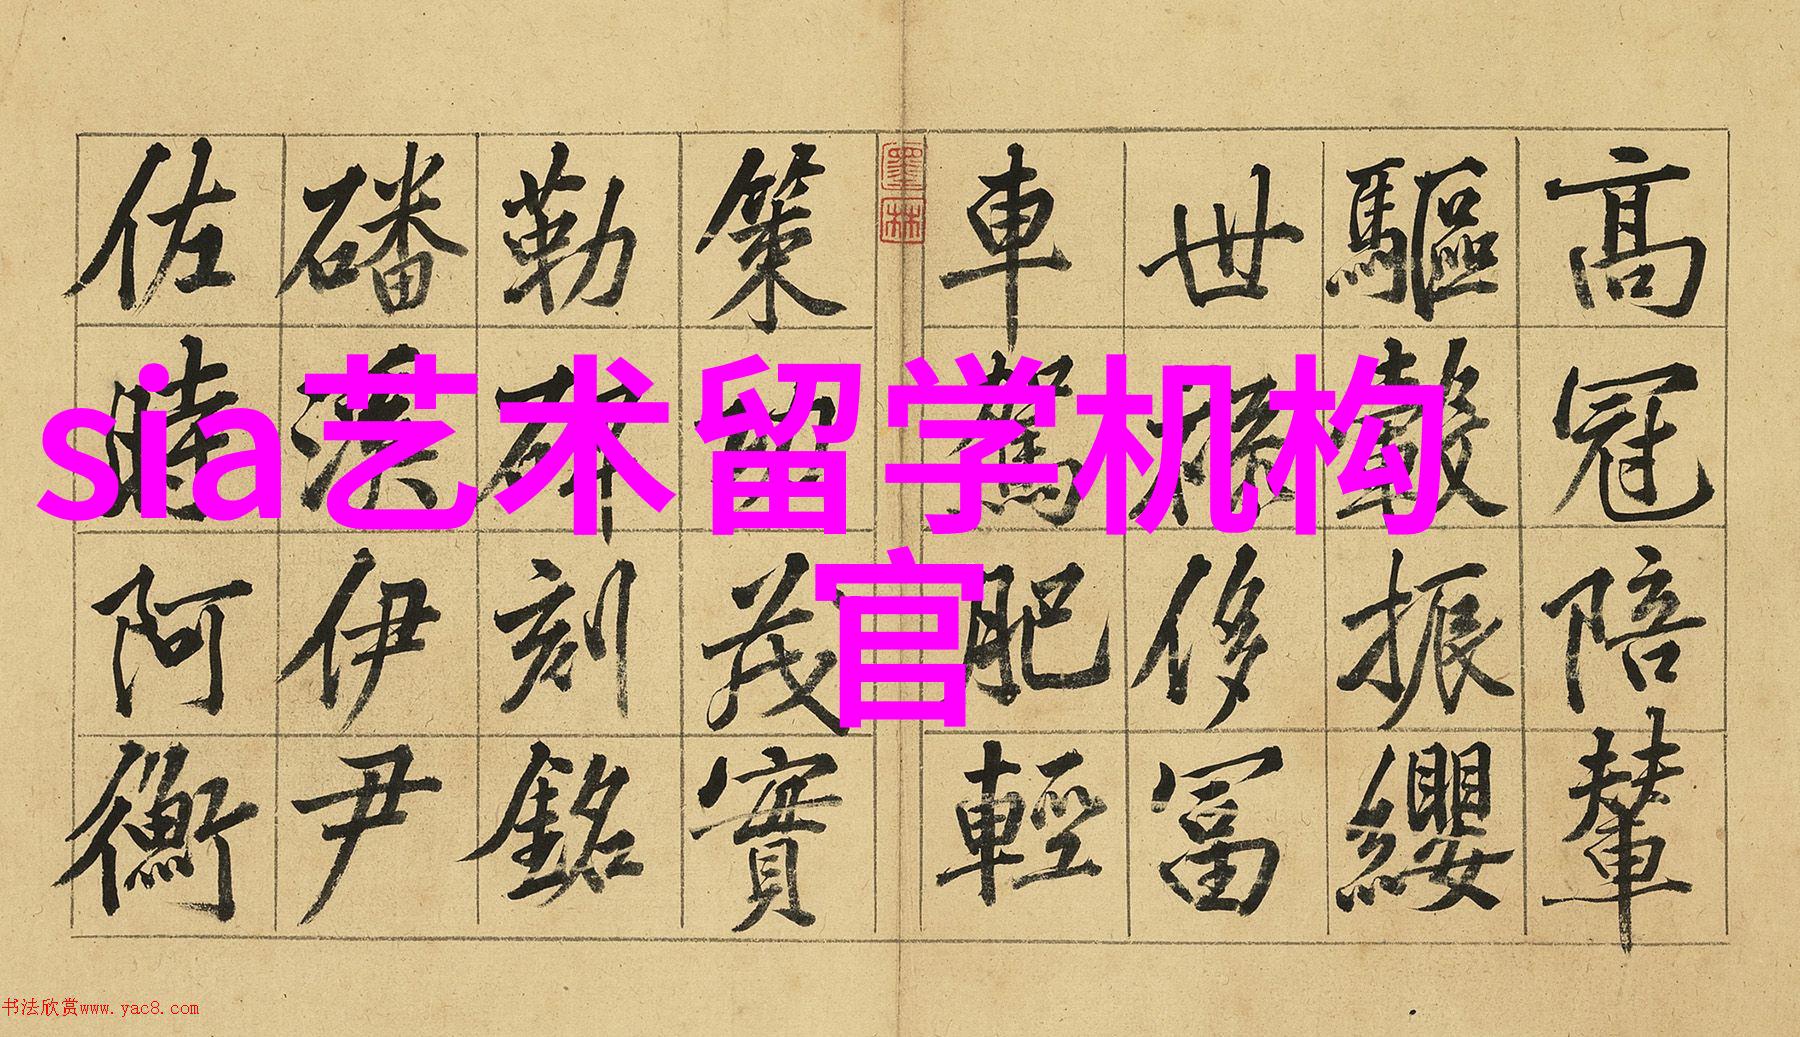 高冠陪輦
驅轂振纓
世祿侈富
車駕肥輕
墨林
策功茂實
勒碑刻銘
磻溪伊尹
佐時阿衡
sia艺术留学机构
官
书法欣赏www.yac8.com